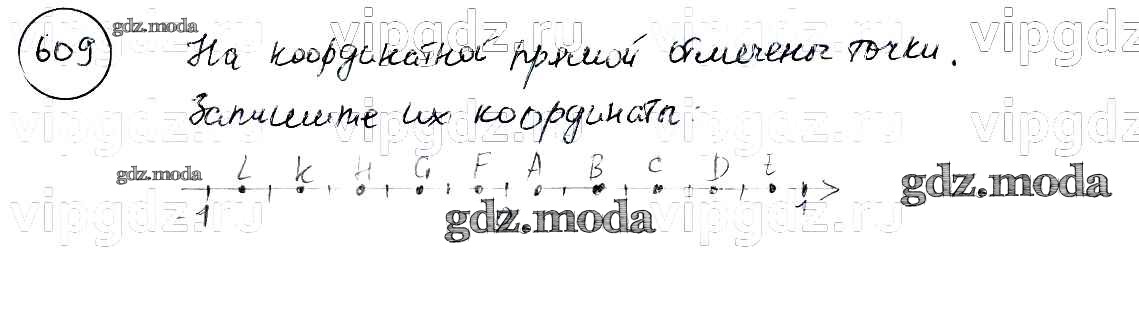 vipgdz.ru vipgdz.ru vipgdz.ru vipgdz
609 gdz.moda На координатной прямой отмечены точки.
Запишите их координаты:
vipgdz.ru vipgdz.ru vipgdz.ru vipgdz
gdz.moda L K H G F A B C D E gdz.moda
-1 gdz.moda 1
vipgdz.ru vipgdz.ru vipgdz.ru vipgdz